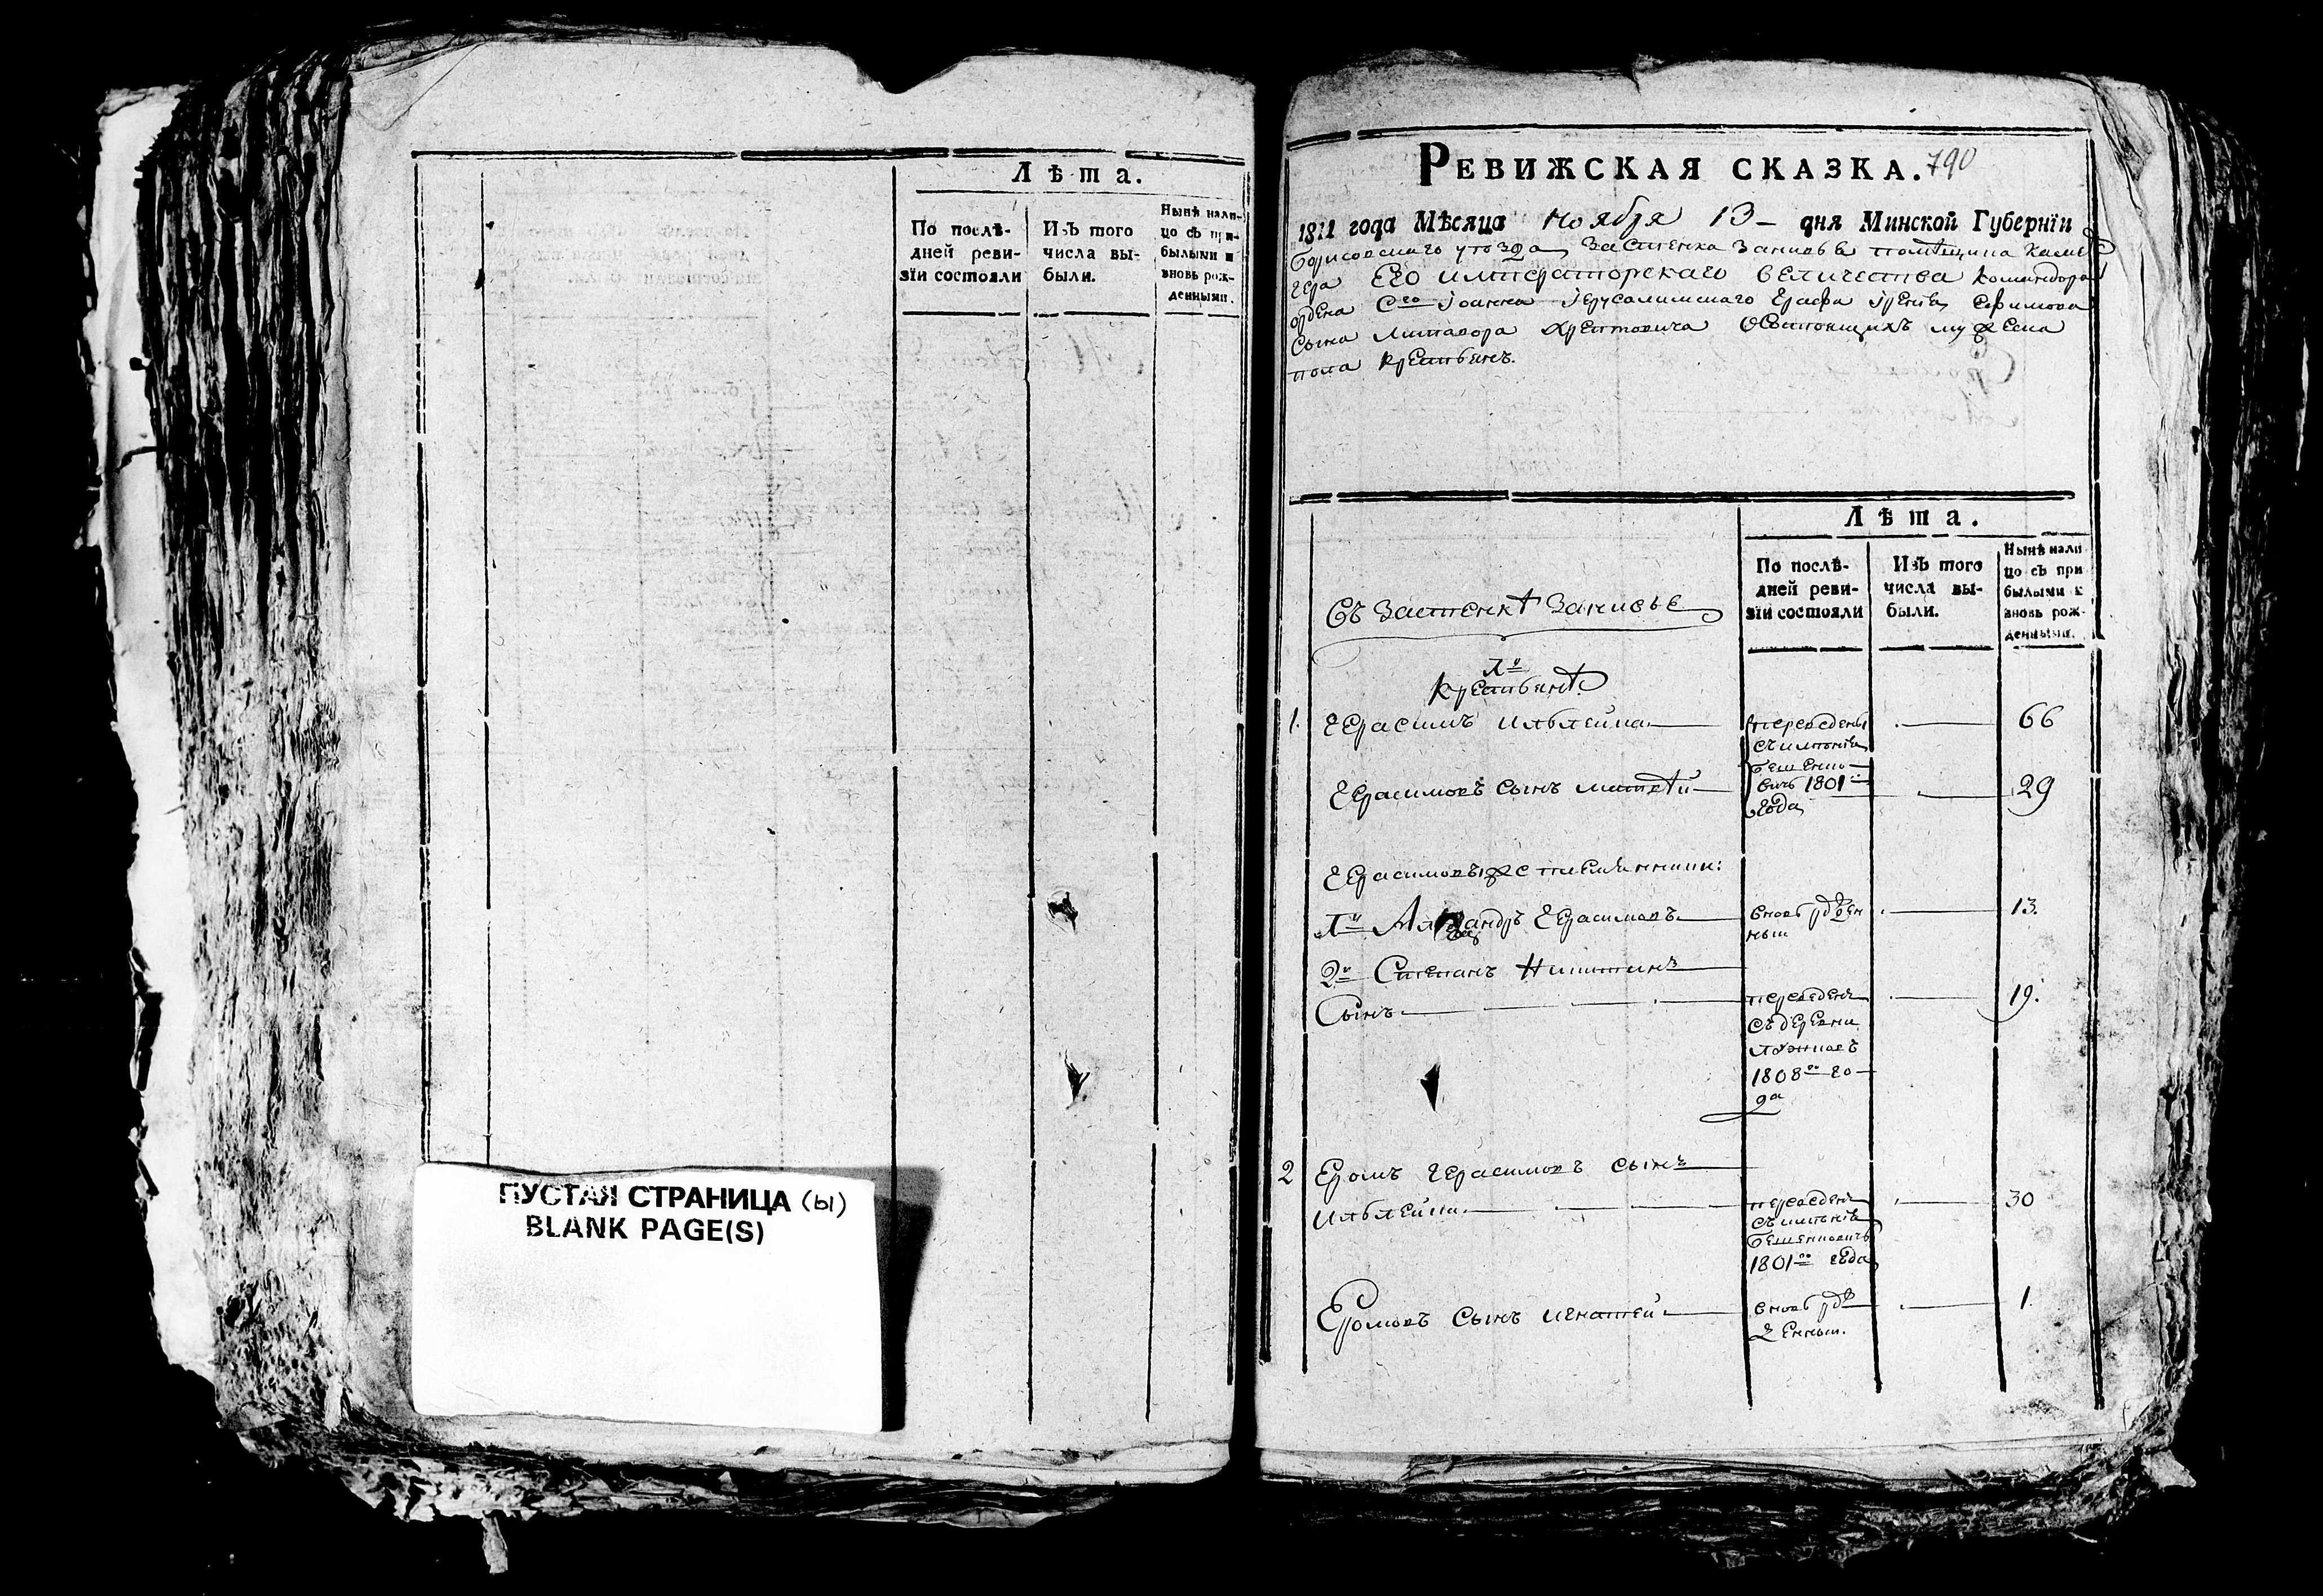 Лѣта.
По послѣ-
дней реви-
зіи состояли
Изъ того
числа вы-
были.
Нынѣ нали-
цо съ при-
былыми и
вновь рож-
денными.
ПУСТАЯ СТРАНИЦА (ы)
BLANK PAGE(S)
РЕВИЖСКАЯ СКАЗКА. 790
1811 года Мѣсяца ноября 13 дня Минской Губерніи
Борисовскаго уѣзда застенка Записье помѣщика Камеръ
гера Его императорскаго величества командора
ордена Сго Іоанна Іерусалимскаго Графа Ефимова
сына Литавора Хрептовича о мужеска
пола крестьянъ.
Лѣта.
По послѣ-
дней реви-
зіи состояли
Изъ того
числа вы-
были.
Нынѣ нали
цо съ при
былыми и
вновь рож-
денными.
Въ застенкѣ
крестьянѣ
1. Герасимъ переведены 66
съ имѣнія
Бешенко-
вичъ 1801
года
Герасимовъ сынъ 29
Герасимовы же племянники:
Александръ Герасимовъ вновь рожден 13.
ный
2й Степанъ Никитинъ
Сынъ переведенъ 19.
съ деревни
1808го го-
да
2 Еромъ Герасимовъ сынъ
переведенъ 30
съ имѣнія
Бешенковичъ
1801го года
Еромовъ сынъ Игнатей вновь рож 1.
денный.